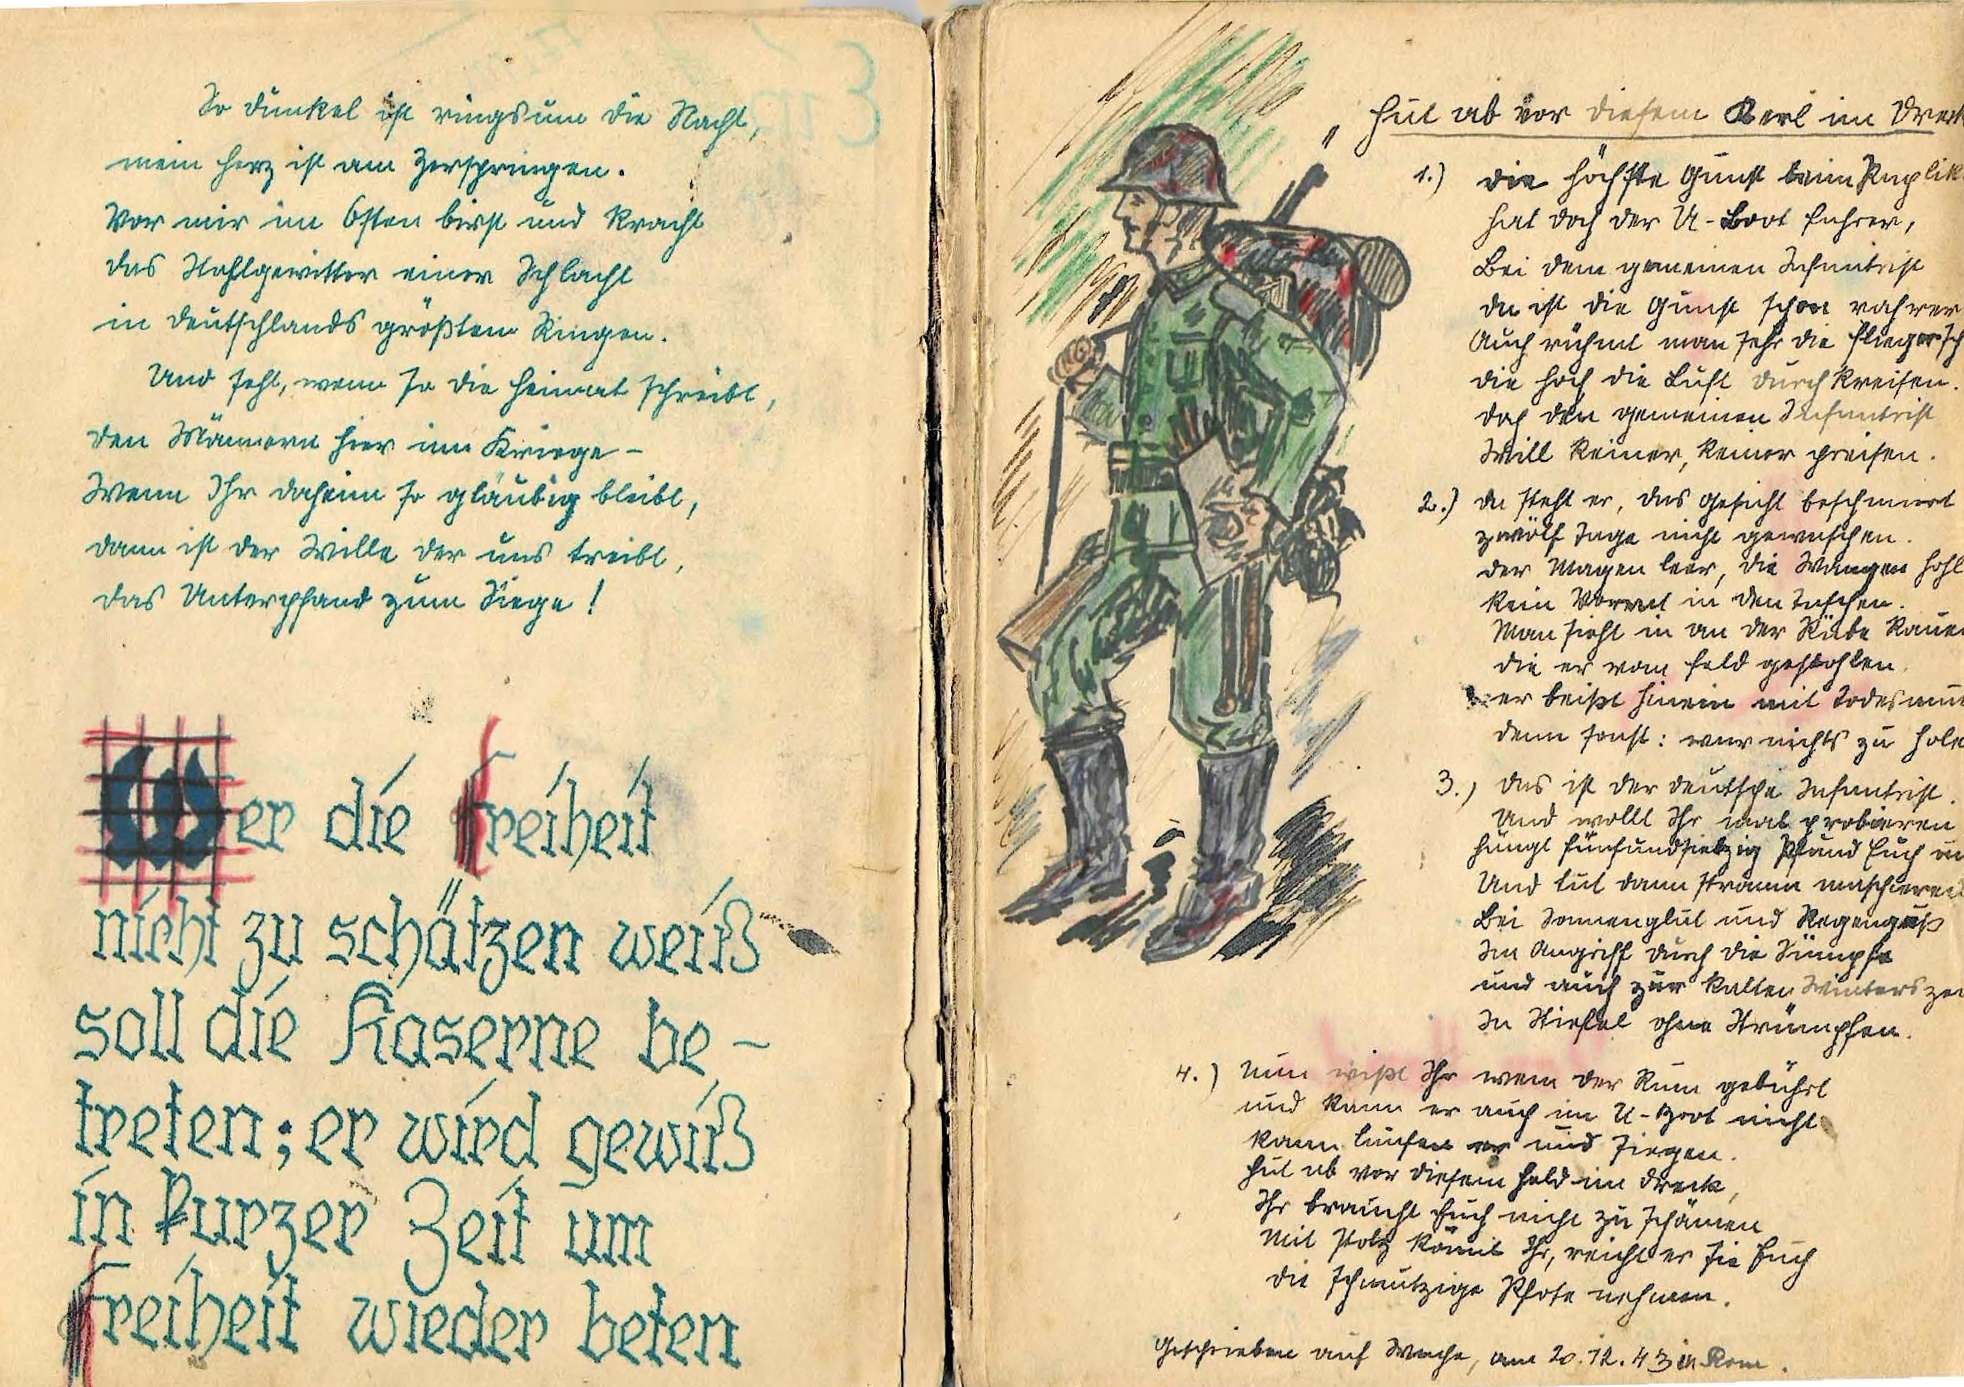 So dunkel ist ringsum die Nacht,
mein Herz ist am Zerspringen.
Vor mir im Osten birst und kracht
das Stahlgewitter einer Schlacht
in Deutschlands größten Ringen.
Und seht, wenn so die Heimat schreibt,
den Männern hier im Kriege –
Wenn Ihr daheim so gläubig bleibt,
dann ist der Wille der uns treibt,
das Unterpfand zum Siege!
Wer die Freiheit
nicht zu schätzen weiß
soll die Kaserne be-
treten; er wird gewiß
in kurzer Zeit um
Freiheit wieder beten
"Hut ab vor diesem Kerl im Dreck
1.) die höchste Gunst beim
hat doch der U-Boot fuhrer,
Bei dem gemeinen Infantrist
da ist die Gunst schon rahrer
Auch rühmt man sehr die
die hoch die Luft durch kreisen.
doch den gemeinen Infantrist
Will keiner, keiner preisen.
2.) da steht er, das Gesicht beschmiert
zwölf Tage nicht gewaschen.
der Magen leer, die Wangen hohl
kein Vorrat in den Taschen.
Man sieht in an der Rübe kauen
die er vom Feld gestohlen.
er beißt hinein mit Todesmut
denn sonst: war nichts zu hole
3.) das ist der deutsche Infantrist.
Und wollt Ihr mal probieren
hängt fünfundsiebzig Pfund Euch um
Und tut dann stramm maschieren
Bei Sonnenglut und Regenguß
Im Angriff durch die Sümpfe
und auch zur kalten Winterszei
In Stiefel ohne Strümpfen.
4.) Nun wißt Ihr wem der Rum gebührt
und kann er auch im U-Boot nicht
kann laufen er und siegen.
Hut ab vor diesem Held im Dreck,
Ihr braucht Euch nicht zu schämen
Mit Stolz könnt Ihr, reicht er sie Euch
die schmutzige Pfote nehmen.
Geschrieben auf Wache, am 20.12.43 in Rom.